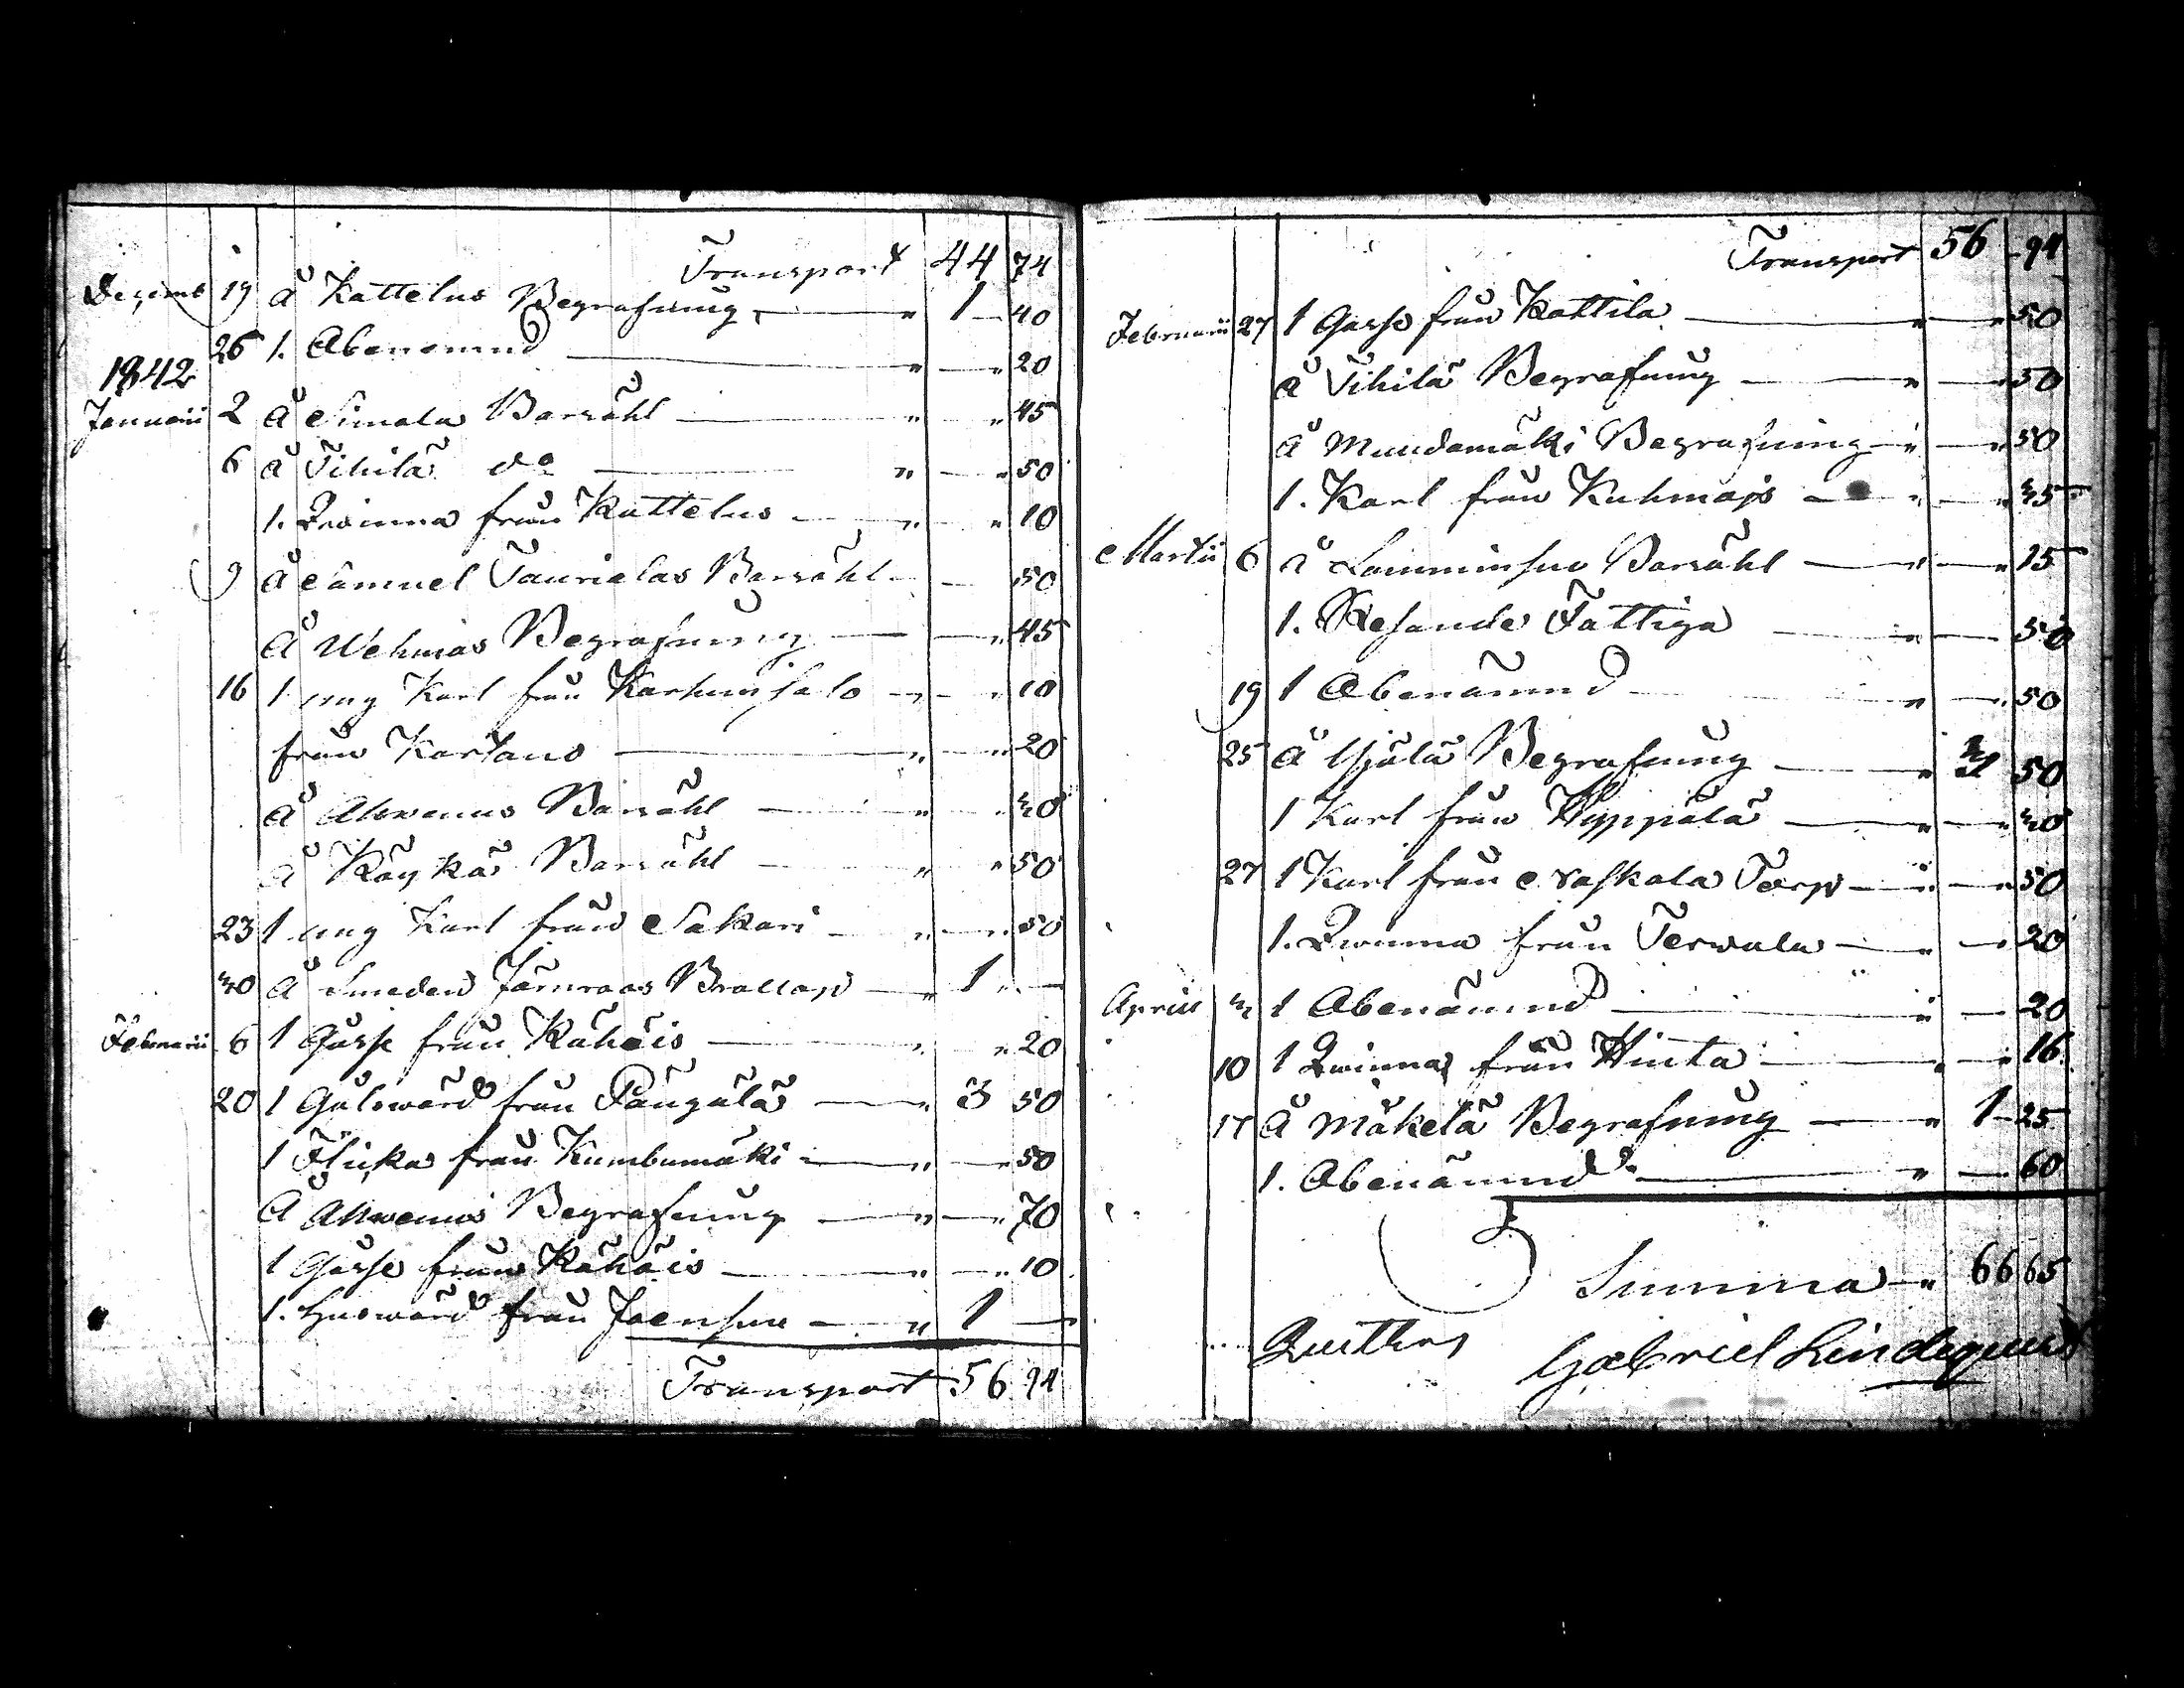 Transport 44 74
Decemb 19 å Kattelus Begrafning — " 1 — 40
26 1. Abenemnd — " — " 20
1842
Januarii 2 å Simola Barsåhl — " — " 45
6 å Tihilä do — " — " 50
1. Qwinna från Kattelus — " — " 10
9 å Samuel Taurialas Barsåhl — — 50
å Wehmas Begrafning — — " 45
16 1 ung Karl från Karhunsalo — " — " 10
från Kartano — " — " 20
å Ahvenus Barsåhl — " — " 30
å Käykä Barsåhl — " — " 50
23 1 ung Karl från Sakari — " — " 50
30 å Smeden Jernroos Brållop — " 1 " —
Februarii 6 1 Gåsse från Kähöis — " — " 20
20 1 Gålswärd från Pangala — " 3 50
1 Flicka från Kumbumäki — " — 50
å Ahvenus Begrafning — " — " 70
1 Gåsse från Kähöis — " — " 10
1. Huswärd från Joensuu — " 1 —
Transport 56 94
Transport 56 94
Februarii 27 1 Gåsse från Kattila — " — " 50
å Tihilä Begrafning — " — " 50
å Mundamäki Begrafning — " — " 50
1. Karl från Kuhmajs — " — " 35
Martii 6 å Lamminsuo Barsåhl — " — " 15
1. Resande Fattiga — " — 50
19 1 Abenämnd — " — " 50
25 å Ujålä Begrafning — " 50
1 Karl från Hyppälä — " — " 30
27 1 Karl från Torp — " — " 50
1. Qwinna från Terwala — " — 20
Aprill 3 1 Abenämnd — " — 20
10 1 Qwinna från Hinta — " — " 16
17 å Mäkelä Begrafning — " 1 — 25
1. Abenämnd — " — 60
Summa — " 66 65
Quitteras Gabriel Lindequist